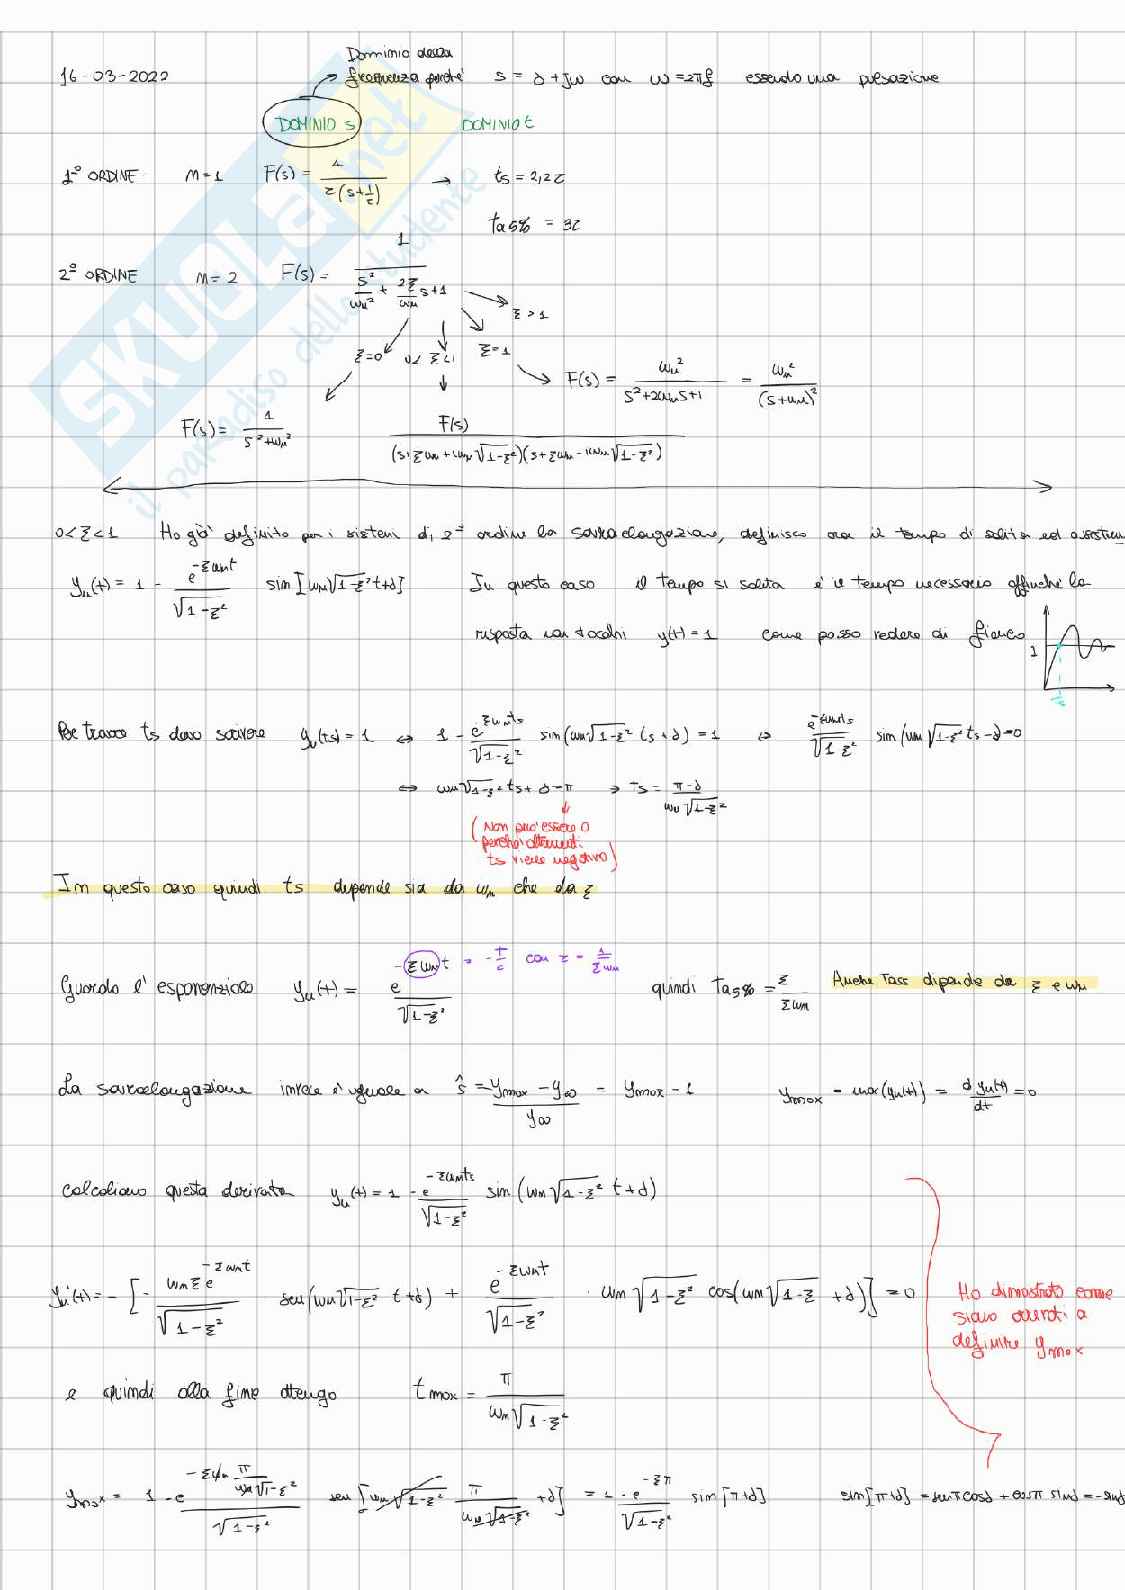 Dominio della
16-03-2022 frequenza perché s = σ + jω con ω = 2πf essendo una pulsazione
DOMINIO s DOMINIO t
1° ORDINE m=1 F(s) = 1 / τ(s+1/τ) → ts = 2,2τ
ta5% = 3τ
2° ORDINE m=2 F(s) = 1 / (s²/ωn² + 2ξ/ωn s+1)
ξ>1
ξ=0 0<ξ<1 ξ=1
F(s) = ωn² / (s²+2ωns+1) = ωn² / (s+ωn)²
F(s) = 1 / (s²+ωn²) F(s) / (s+ξωn+iωn√1-ξ²)(s+ξωn-iωn√1-ξ²)
0<ξ<1 Ho già definito per i sistemi di 2° ordine la sovraelongazione, definisco ora il tempo di salita ed
yu(t) = 1 - e^-ξωnt / √1-ξ² sin[ωn√1-ξ² t+δ] In questo caso il tempo si salita è il tempo necessario affinché la
risposta non tocchi y(t)=1 come posso vedere di fianco
1
ts
Per trovare ts devo scrivere yu(ts)=1 ⇔ 1 - e^-ξωnts / √1-ξ² sin(ωn√1-ξ² ts+δ) = 1 ⇔ e^-ξωnts / √1-ξ² sin(ωn√1-ξ² ts-δ)=0
⇔ ωn√1-ξ² ts+δ=π → Ts = π-δ / ωn√1-ξ²
(Non può essere 0
perché altrimenti
ts viene negativo)
In questo caso quindi ts dipende sia da ωn che da ξ
-ξωnt = -t/τ con τ = 1/ξωn
Guardo l'esponenziale yu(t) = e / √1-ξ² quindi Ta5% = ξ/ξωn Anche Tass dipende da ξ e ωn
La sovraelongazione invece è uguale a ŝ = ymax - y∞ / y∞ = ymax - 1 ymax = max(yu(t)) = d yu(t)/dt = 0
calcoliamo questa derivata yu(t) = 1 - e^-ξωnt / √1-ξ² sin(ωn√1-ξ² t+δ)
yu'(t) = -[-ωnξe^-ξωnt / √1-ξ² sen(ωn√1-ξ² t+δ) + e^-ξωnt / √1-ξ² · ωn√1-ξ² cos(ωn√1-ξ +δ)] = 0
Ho dimostrato come
siano a
definire ymax
e quindi alla fine ottengo tmax = π / ωn√1-ξ²
ymax = 1 - e^-ξωn π/ωn√1-ξ² / √1-ξ² sen[ωn√1-ξ² π/ωn√1-ξ² +δ] = 1 - e^-ξπ / √1-ξ² sin[π+δ] sin[π+δ] = senπcosδ + cosπ sinδ = -sinδ
SKUOLA.net
il paradiso dello studente